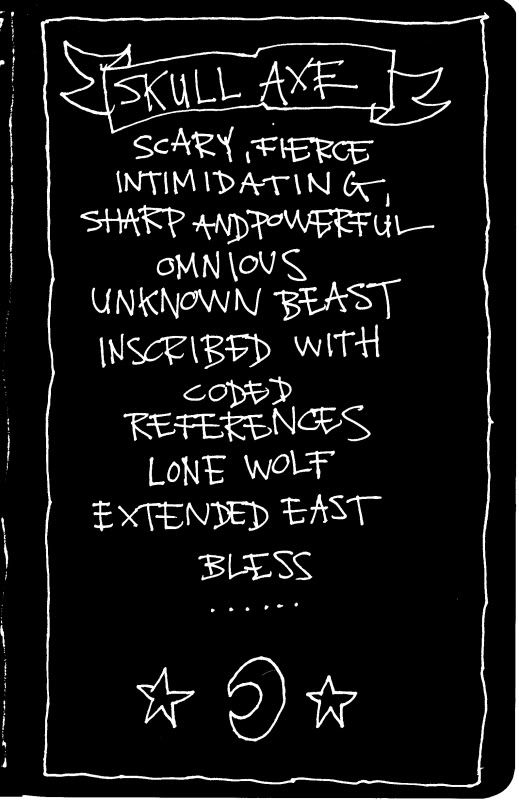 SKULL AXE
SCARY, FIERCE
INTIMIDATING,
SHARP AND POWERFUL
OMNIOUS
UNKNOWN BEAST
INSCRIBED WITH
CODED
REFERENCES
LONE WOLF
EXTENDED EAST
BLESS
......